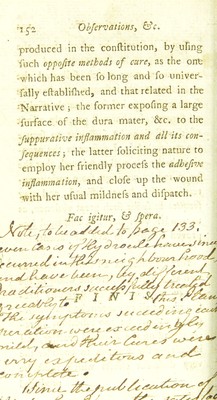 152 Obſervations, &c.
produced in the conſtitution, by uſing
ſuch oppoſite methods of cure, as the one
which has been ſo long and ſo univer-
ſally eſtabliſhed, and that related in the
Narrative; the former expoſing a large
ſurface of the dura mater, &c. to the
ſuppurative inflammation and all its con-
ſequences; the latter ſoliciting nature to
employ her friendly proceſs the adheſive
inflammation, and cloſe up the wound
with her uſual mildneſs and diſpatch.
Fac igitur, & ſpera.
Note, to be added to page 133.
cases of Hydrocele have since
occurred in this neighbourhood
and have been, by different
Practitioners successfully treated
agreeable to this plan
FINIS
The symptoms succeeding each
operation were exceedingly
mild, and their cures were
very expeditious and
complete.
Since the publication of